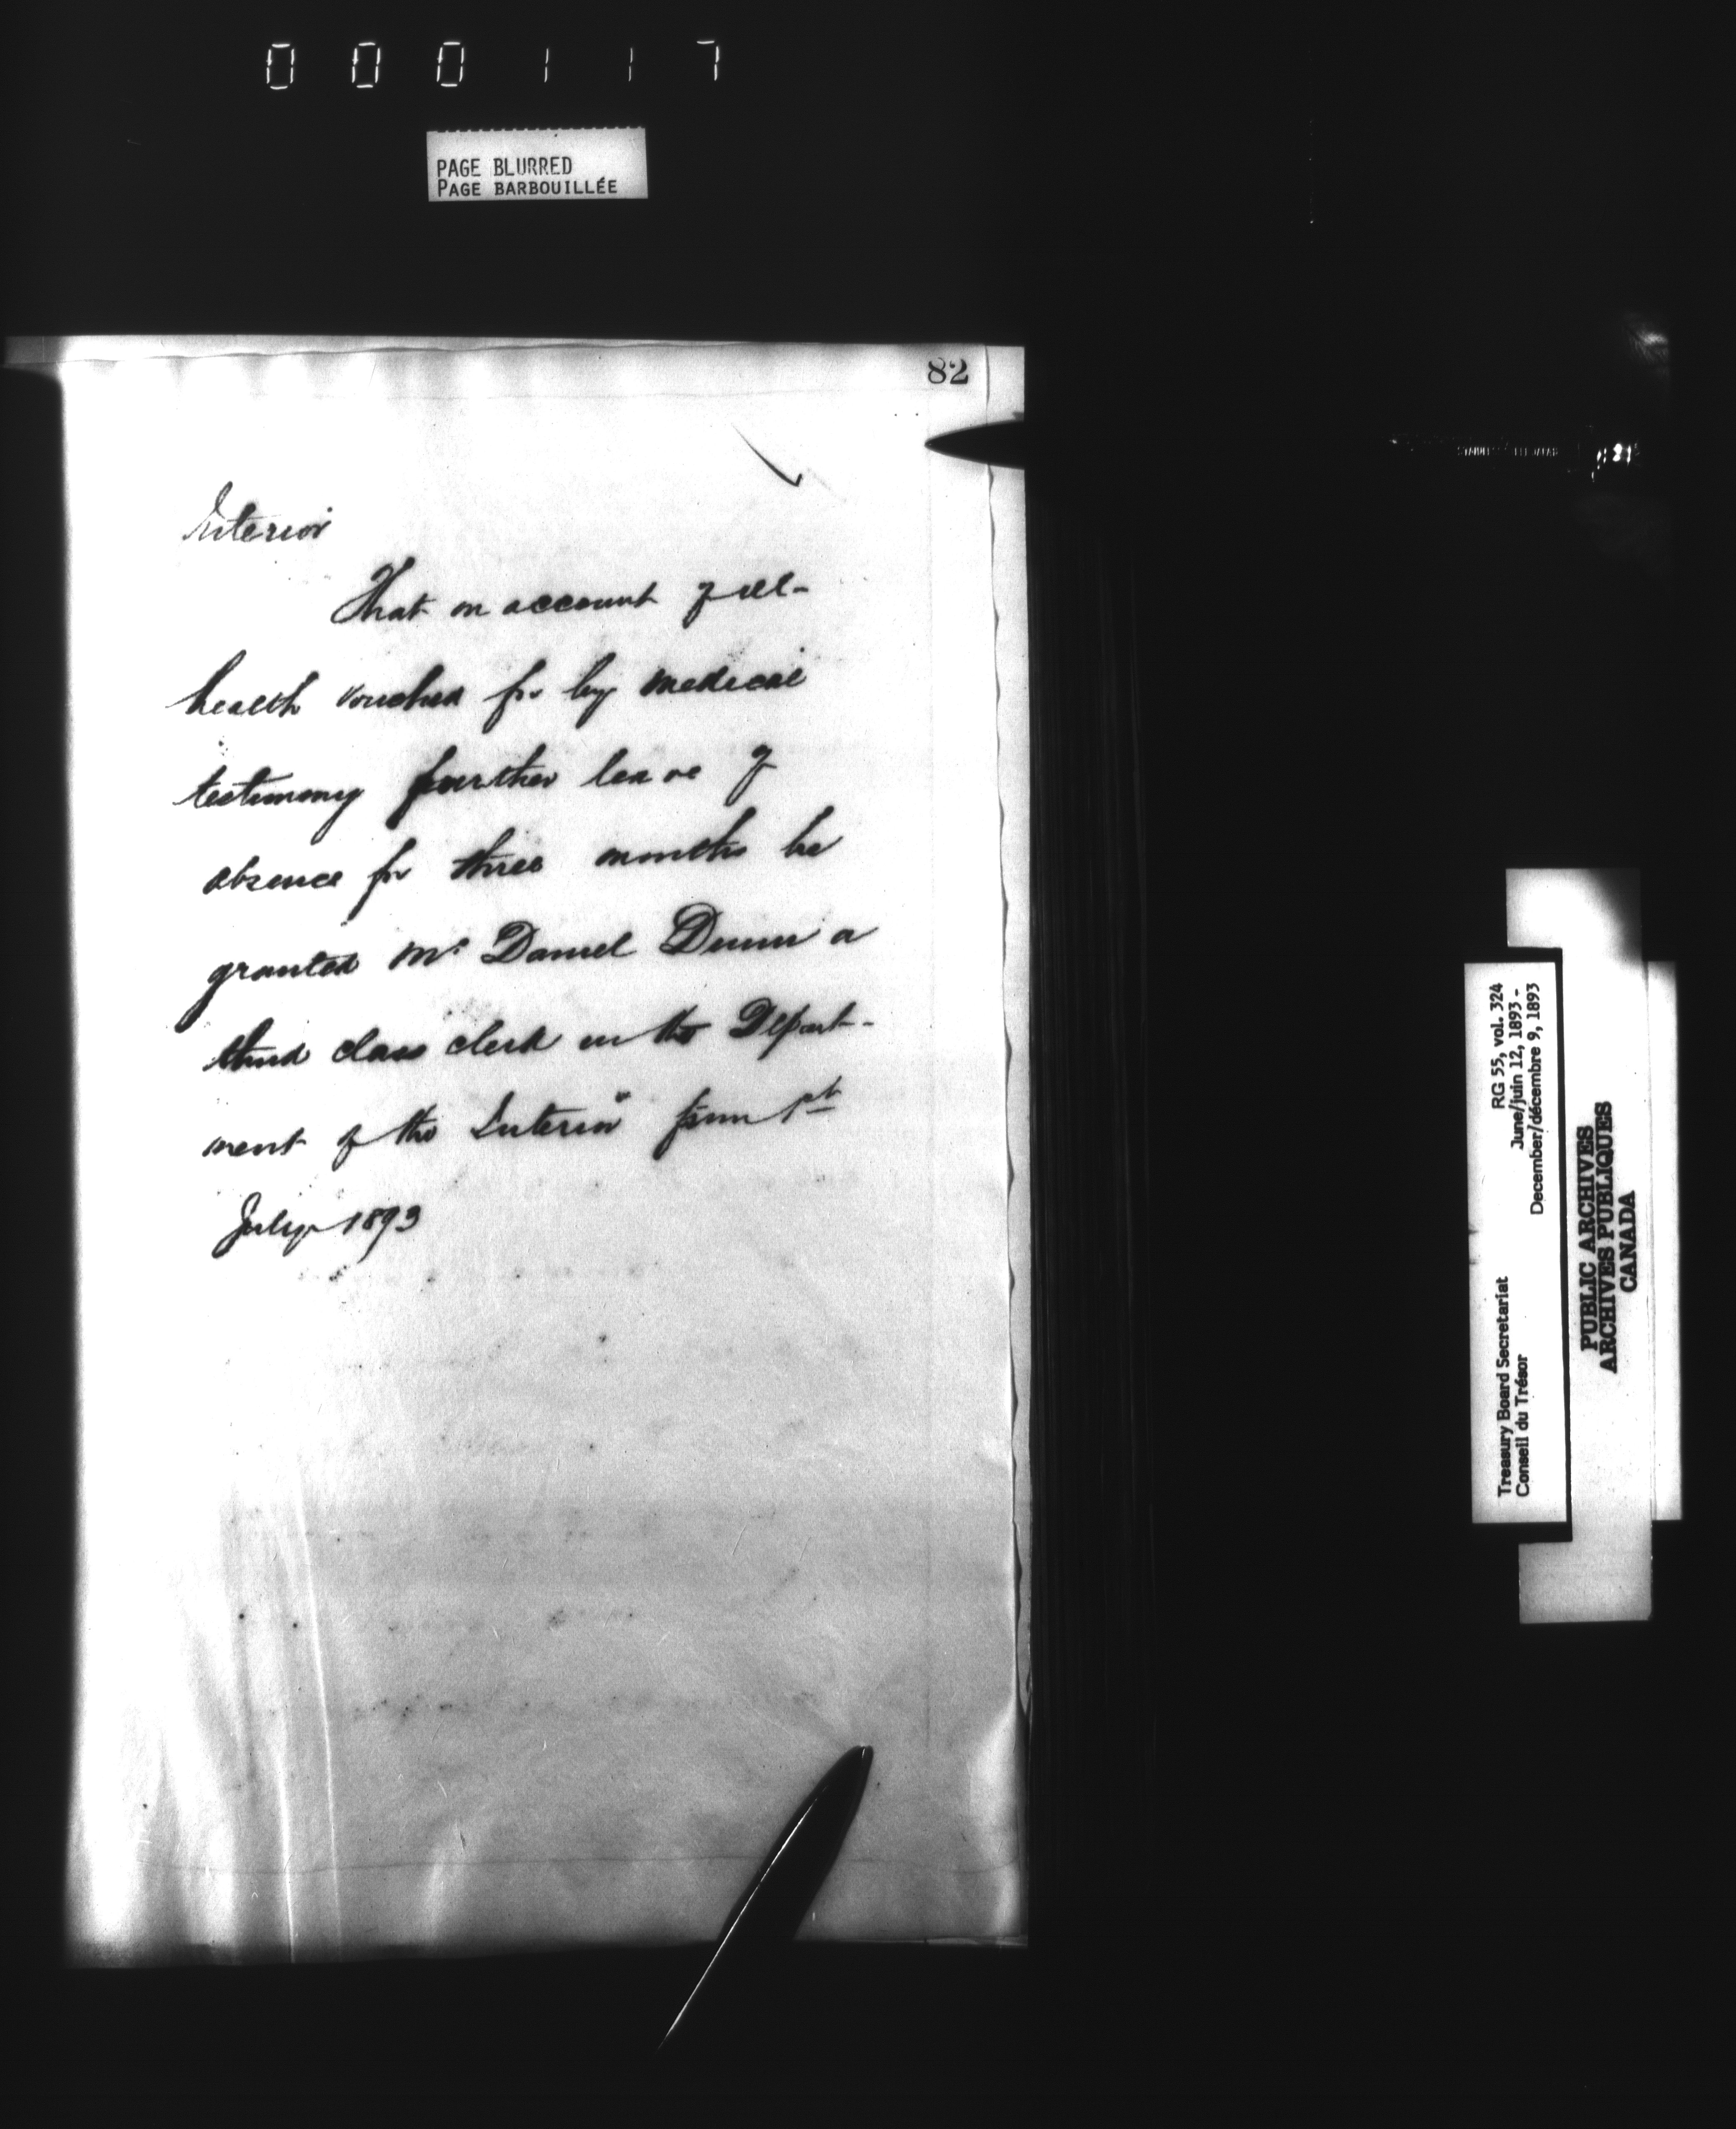 000117
PAGE BLURRED
PAGE BARBOUILLÉE
82
Interior
That on account of ill-
health vouched for by medical
testimony further leave of
absence for three months be
granted Mr Daniel Dunn a
third class clerk in the Depart-
ment of the Interior from 1st
July 1893
Treasury Board Secretariat RG 55, vol. 324
Conseil du Trésor June/juin 12, 1893 -
December/décembre 9, 1893
PUBLIC ARCHIVES
ARCHIVES PUBLIQUES
CANADA